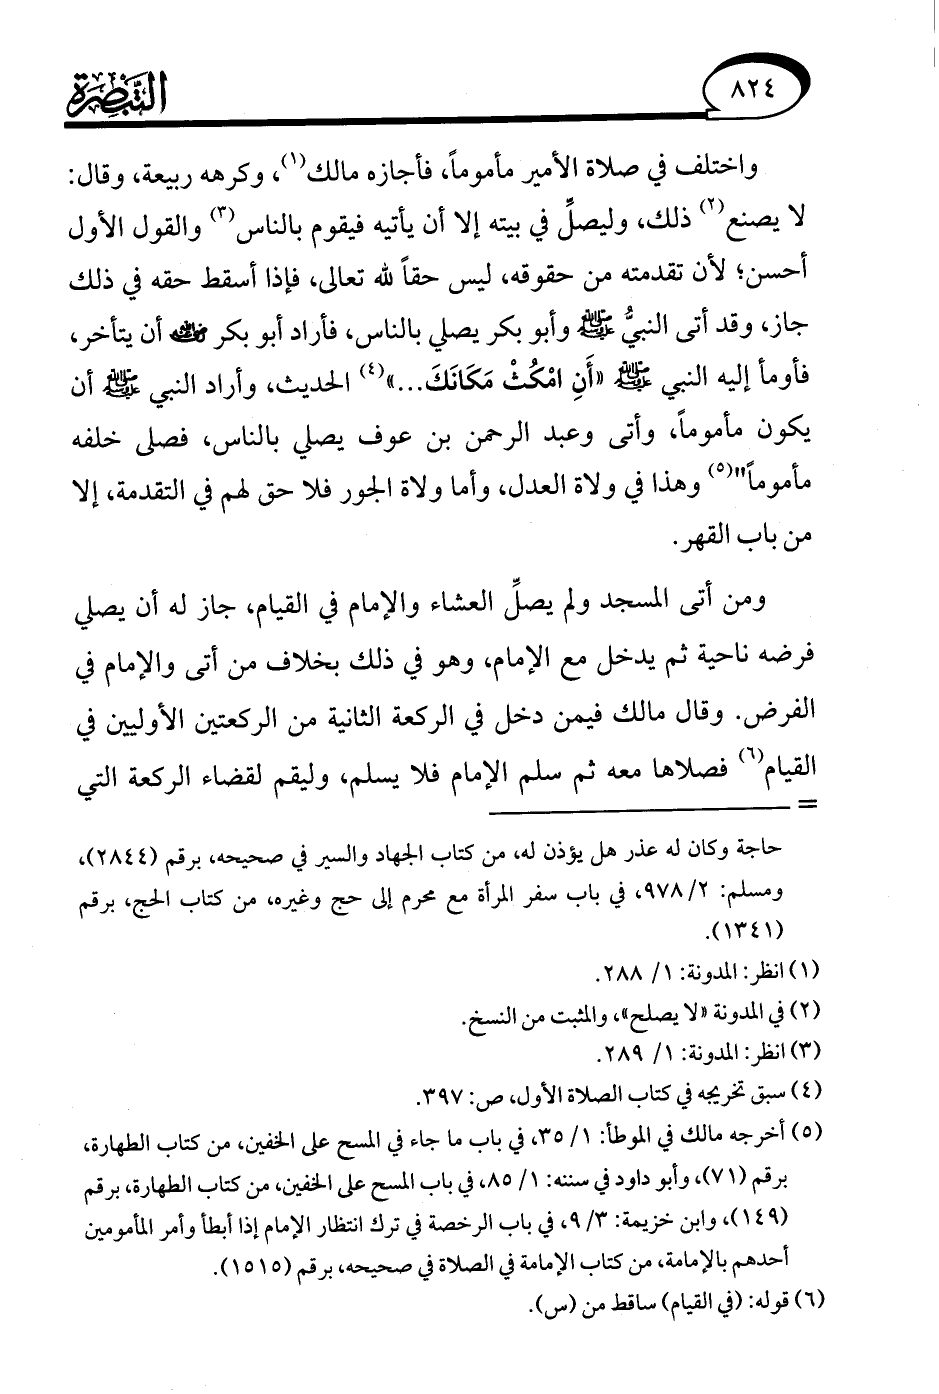 ٨٢٤
التَّبصرة
واختلف في صلاة الأمير مأموماً، فأجازه مالك(١)، وكرهه ربيعة، وقال:
لا يصنع(٢) ذلك، وليصلِّ في بيته إلا أن يأتيه فيقوم بالناس(٣) والقول الأول
أحسن؛ لأن تقدمته من حقوقه، ليس حقاً لله تعالى، فإذا أسقط حقه في ذلك
جاز، وقد أتى النبيُّ ﷺ وأبو بكر يصلي بالناس، فأراد أبو بكر رضي الله عنه أن يتأخر،
فأومأ إليه النبي ﷺ «أَنِ امْكُثْ مَكَانَكَ...»(٤) الحديث، وأراد النبي ﷺ أن
يكون مأموماً، وأتى وعبد الرحمن بن عوف يصلي بالناس، فصلى خلفه
مأموماً"(٥) وهذا في ولاة العدل، وأما ولاة الجور فلا حق لهم في التقدمة، إلا
من باب القهر.
ومن أتى المسجد ولم يصلِّ العشاء والإمام في القيام، جاز له أن يصلي
فرضه ناحية ثم يدخل مع الإمام، وهو في ذلك بخلاف من أتى والإمام في
الفرض. وقال مالك فيمن دخل في الركعة الثانية من الركعتين الأوليين في
القيام(٦) فصلاها معه ثم سلم الإمام فلا يسلم، وليقم لقضاء الركعة التي
=
حاجة وكان له عذر هل يؤذن له، من كتاب الجهاد والسير في صحيحه، برقم (٢٨٤٤)،
ومسلم: ٢/ ٩٧٨، في باب سفر المرأة مع محرم إلى حج وغيره، من كتاب الحج، برقم
(١٣٤١).
(١) انظر: المدونة: ١/ ٢٨٨.
(٢) في المدونة «لا يصلح»، والمثبت من النسخ.
(٣) انظر: المدونة: ١/ ٢٨٩.
(٤) سبق تخريجه في كتاب الصلاة الأول، ص: ٣٩٧.
(٥) أخرجه مالك في الموطأ: ١/ ٣٥، في باب ما جاء في المسح على الخفين، من كتاب الطهارة،
برقم (٧١)، وأبو داود في سننه: ١/ ٨٥، في باب المسح على الخفين، من كتاب الطهارة، برقم
(١٤٩)، وابن خزيمة: ٣/ ٩، في باب الرخصة في ترك انتظار الإمام إذا أبطأ وأمر المأمومين
أحدهم بالإمامة، من كتاب الإمامة في الصلاة في صحيحه، برقم (١٥١٥).
(٦) قوله: (في القيام) ساقط من (س).